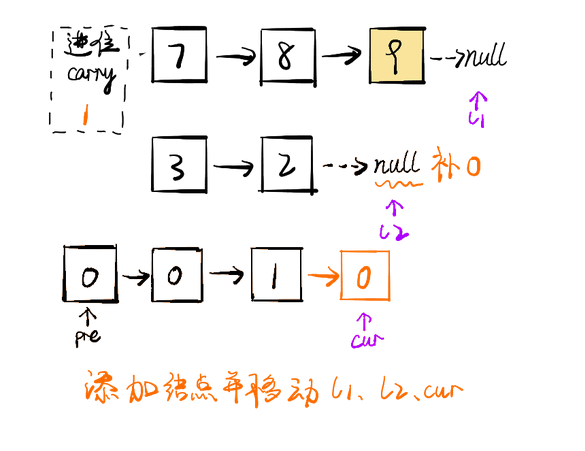 进位
carry
1
7 8 9 null
l1
3 2 null 补0
l2
0 0 1 0
pre
cur
添加结点并移动 l1、l2、cur